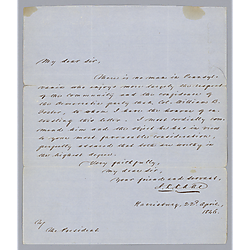 My dear Sir,
There is no man in Pennsyl-
vania who enjoys more largely the respect
of the Community and the confidence of
the Democratic party than Col. William B.
Foster, to whom I have the honor of ad-
dressing this letter. I most cordially com-
mend him and the object he has in view
to your most favorable consideration,
perfectly assured that both are worthy in
the highest degree.
Very faithfully,
My dear Sir,
Your friend and servant,
Harrisburg, 22d April,
1845.
The President